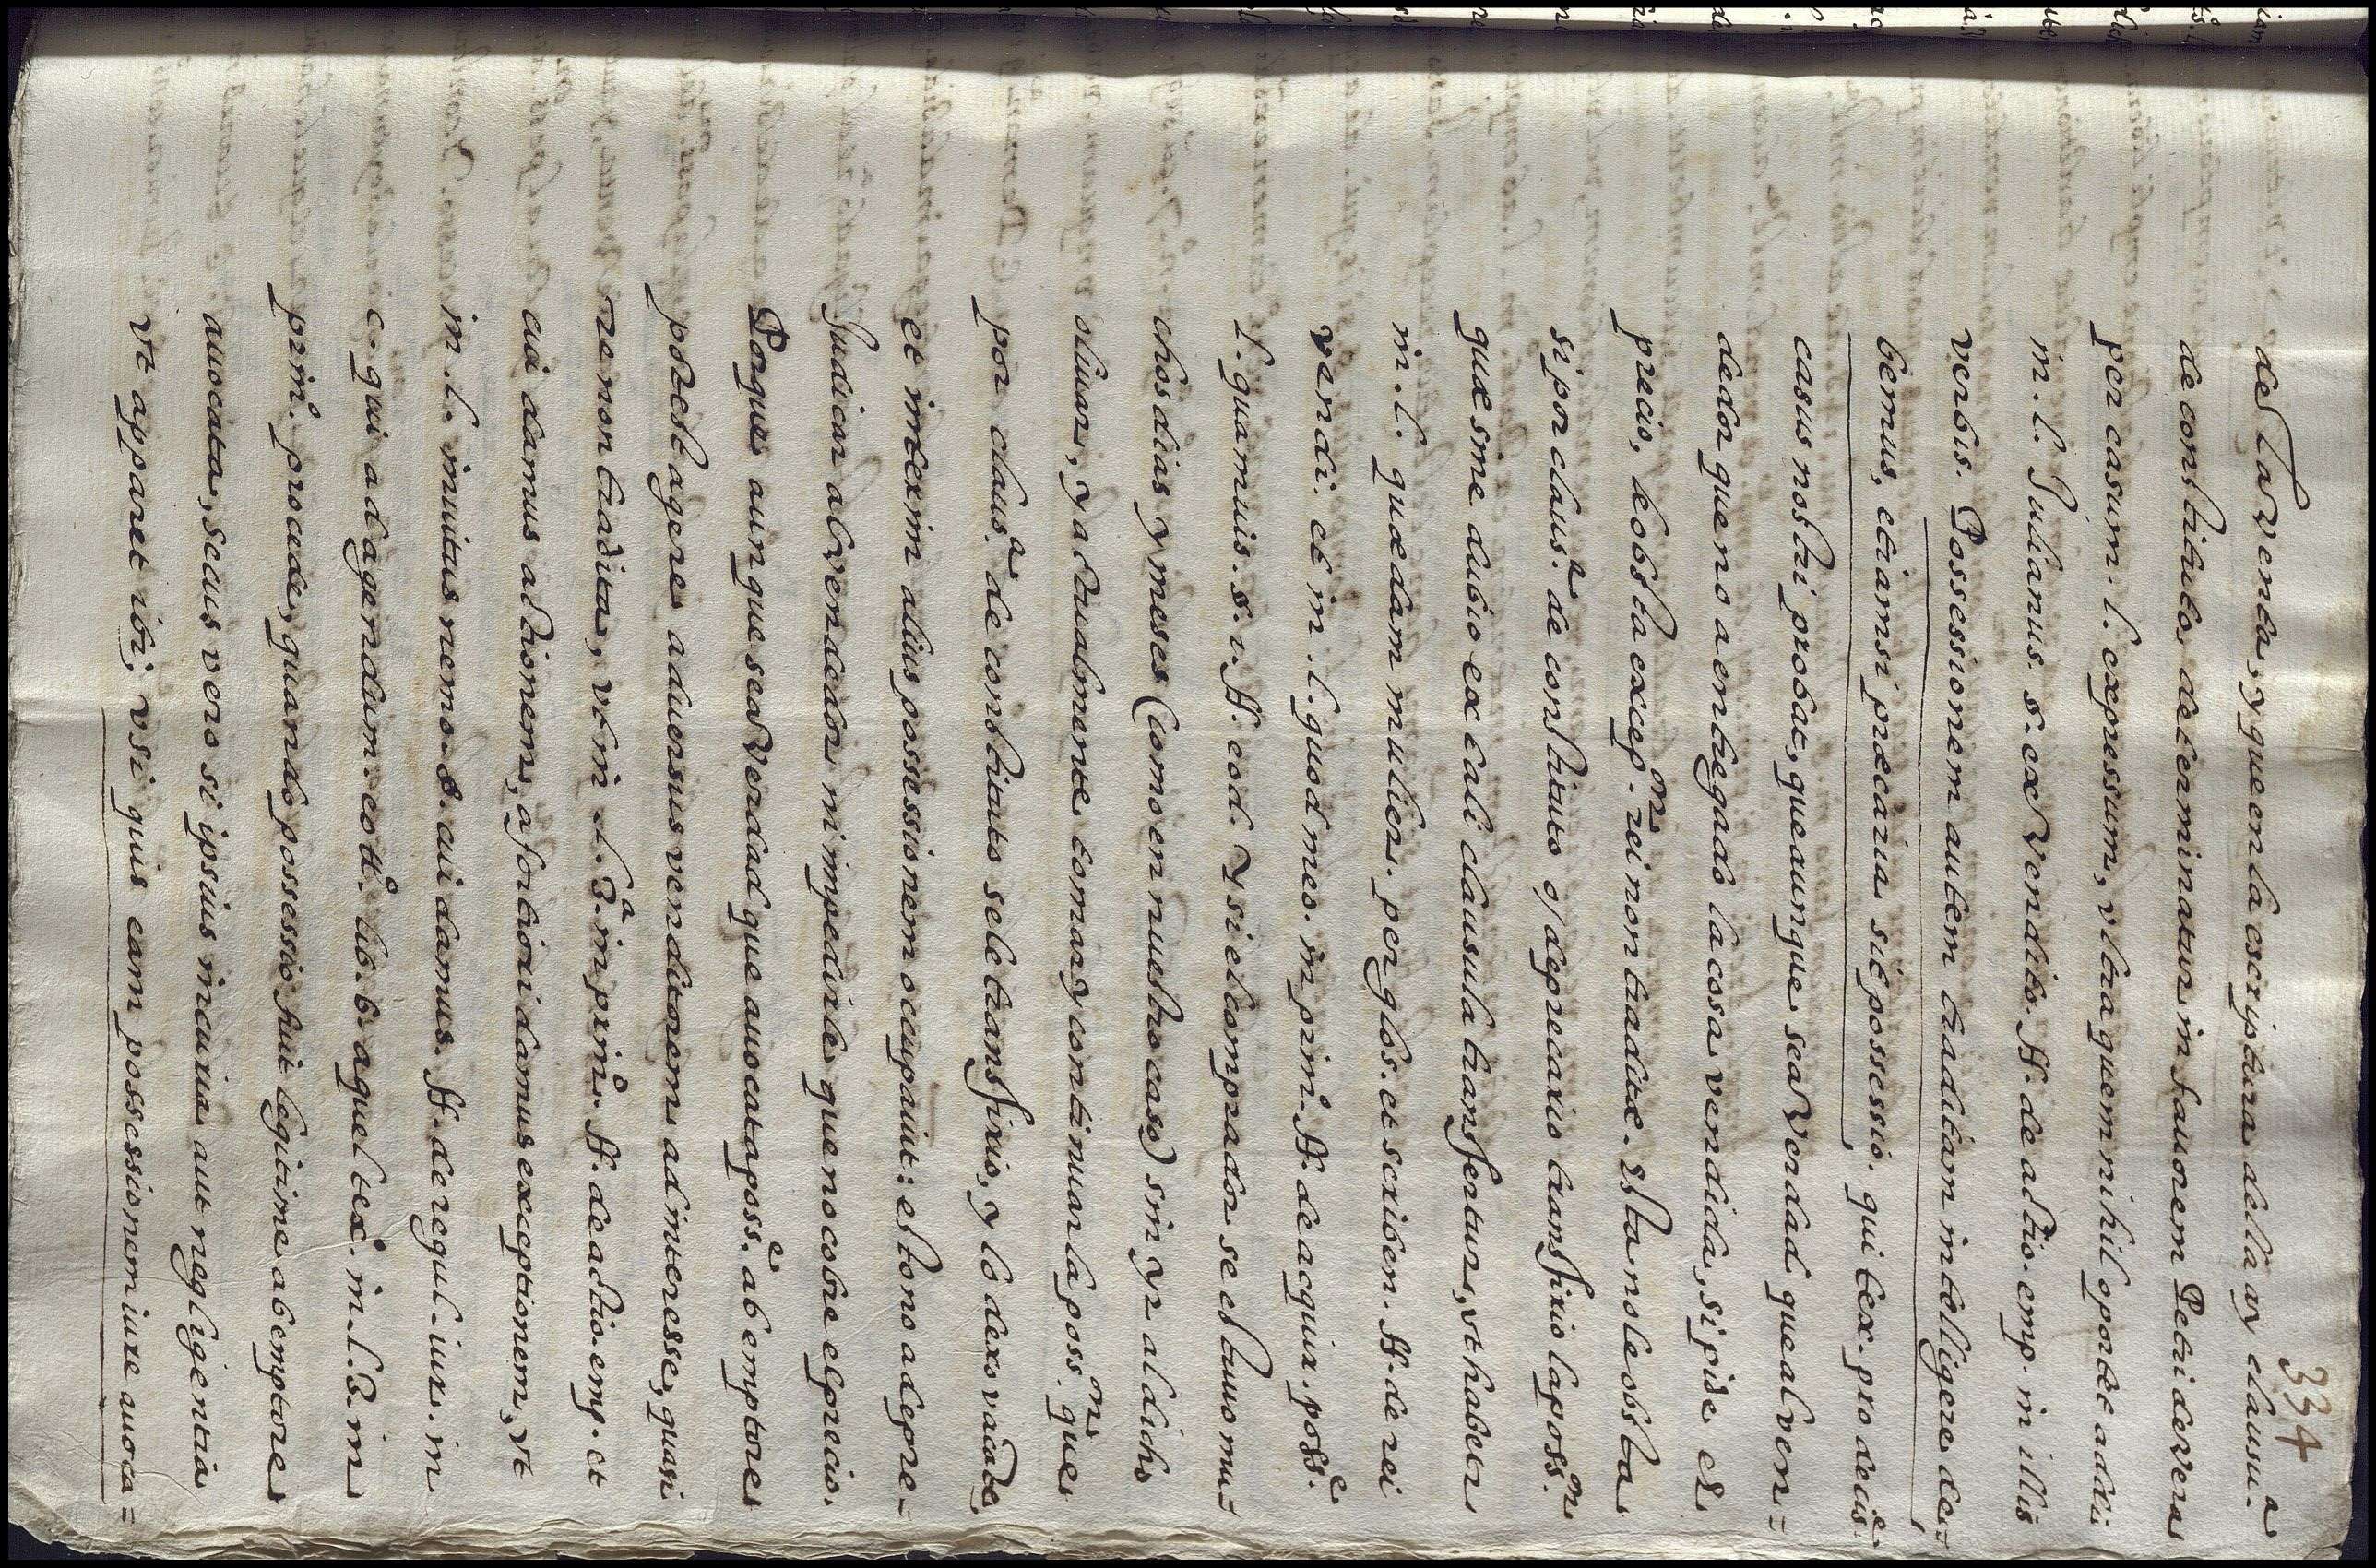 334
de la venta, y que en la escriptura della ay clausu.ª
de constituto, determinatur in fauorem Petri de vera
per casum. l. expressum, vltra quem nihil oportet addi
in. l. Julianus. §. ex vendito. ff. de actio. emp. in illis
verbis. Possessionem autem traditam intelligere de=
bemus, etiamsi præcaria sit possessio. qui tex. pro decis.e
casus nostri probat, que aunque sea verdad que al ven=
dedor que no a entregado la cosa vendida, si pide el
precio, le obsta excep.on rei non traditæ. Esta no le obsta
si por claus.ª de constituto o de precario transfirio la poss.on
quæ sine dubio ex tali clausula transfertur, vt habetur
in. l. quædam mulier. per glos. et scriben. ff. de rei
vendi. et in. l. quod meo. in prin.o ff. de acquir. poss.e
l. quamuis. §. 1. ff. eod. Y si el comprador se estuuo mu=
chos dias y meses (como en nuestro caso) sin yr al dicho
oliuar, y actualmente tomar, y continuar la poss.on que
por claus.ª de constituto se le transfirio, y lo dexo vacate
et interim alius possessionem occupauit: esto no a de pre=
judicar al vendedor ni impedirle que no cobre el precio.
Porque aunque sea verdad que auocata poss.e ab emptore
potest agere aduersus venditorem ad interesse, quasi
re non tradita, vt in l. 3.ª in prin.o ff. de actio. emp. et
cui damus actionem, a fortiori damus exceptionem, vt
in. l. inuitus nemo. §. cui damus. ff. de regul. iur. in
c. qui ad agendum. eod. lib. 6. aquel tex.o in. l. 3. in
prin.o procede, quando possessio fuit legitime ab emptore
auocata, secus vero si ipsius incuria aut negligentia
vt apparet ibi; vsi quis eam possessionem iure auoca=